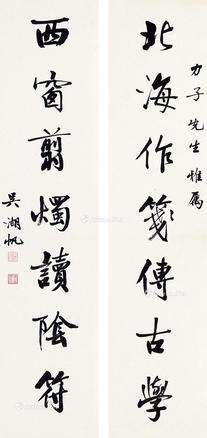 北海作箋傳古學
力子先生雅屬
西窗翦燭讀陰符
吳湖帆